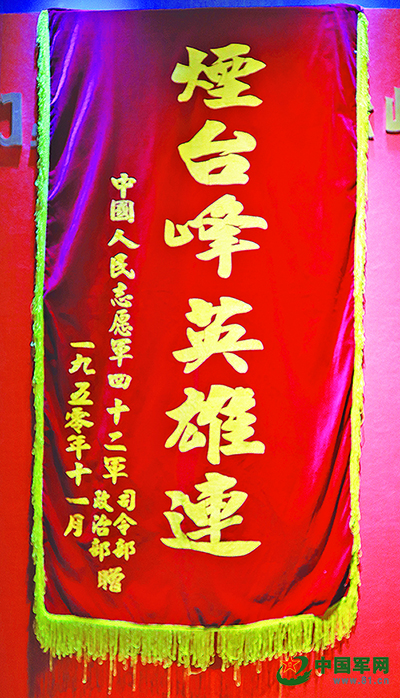 煙台峰英雄連
中國人民志愿軍四十二軍司令部政治部贈
一九五零年十一月
中国军网
www.81.cn